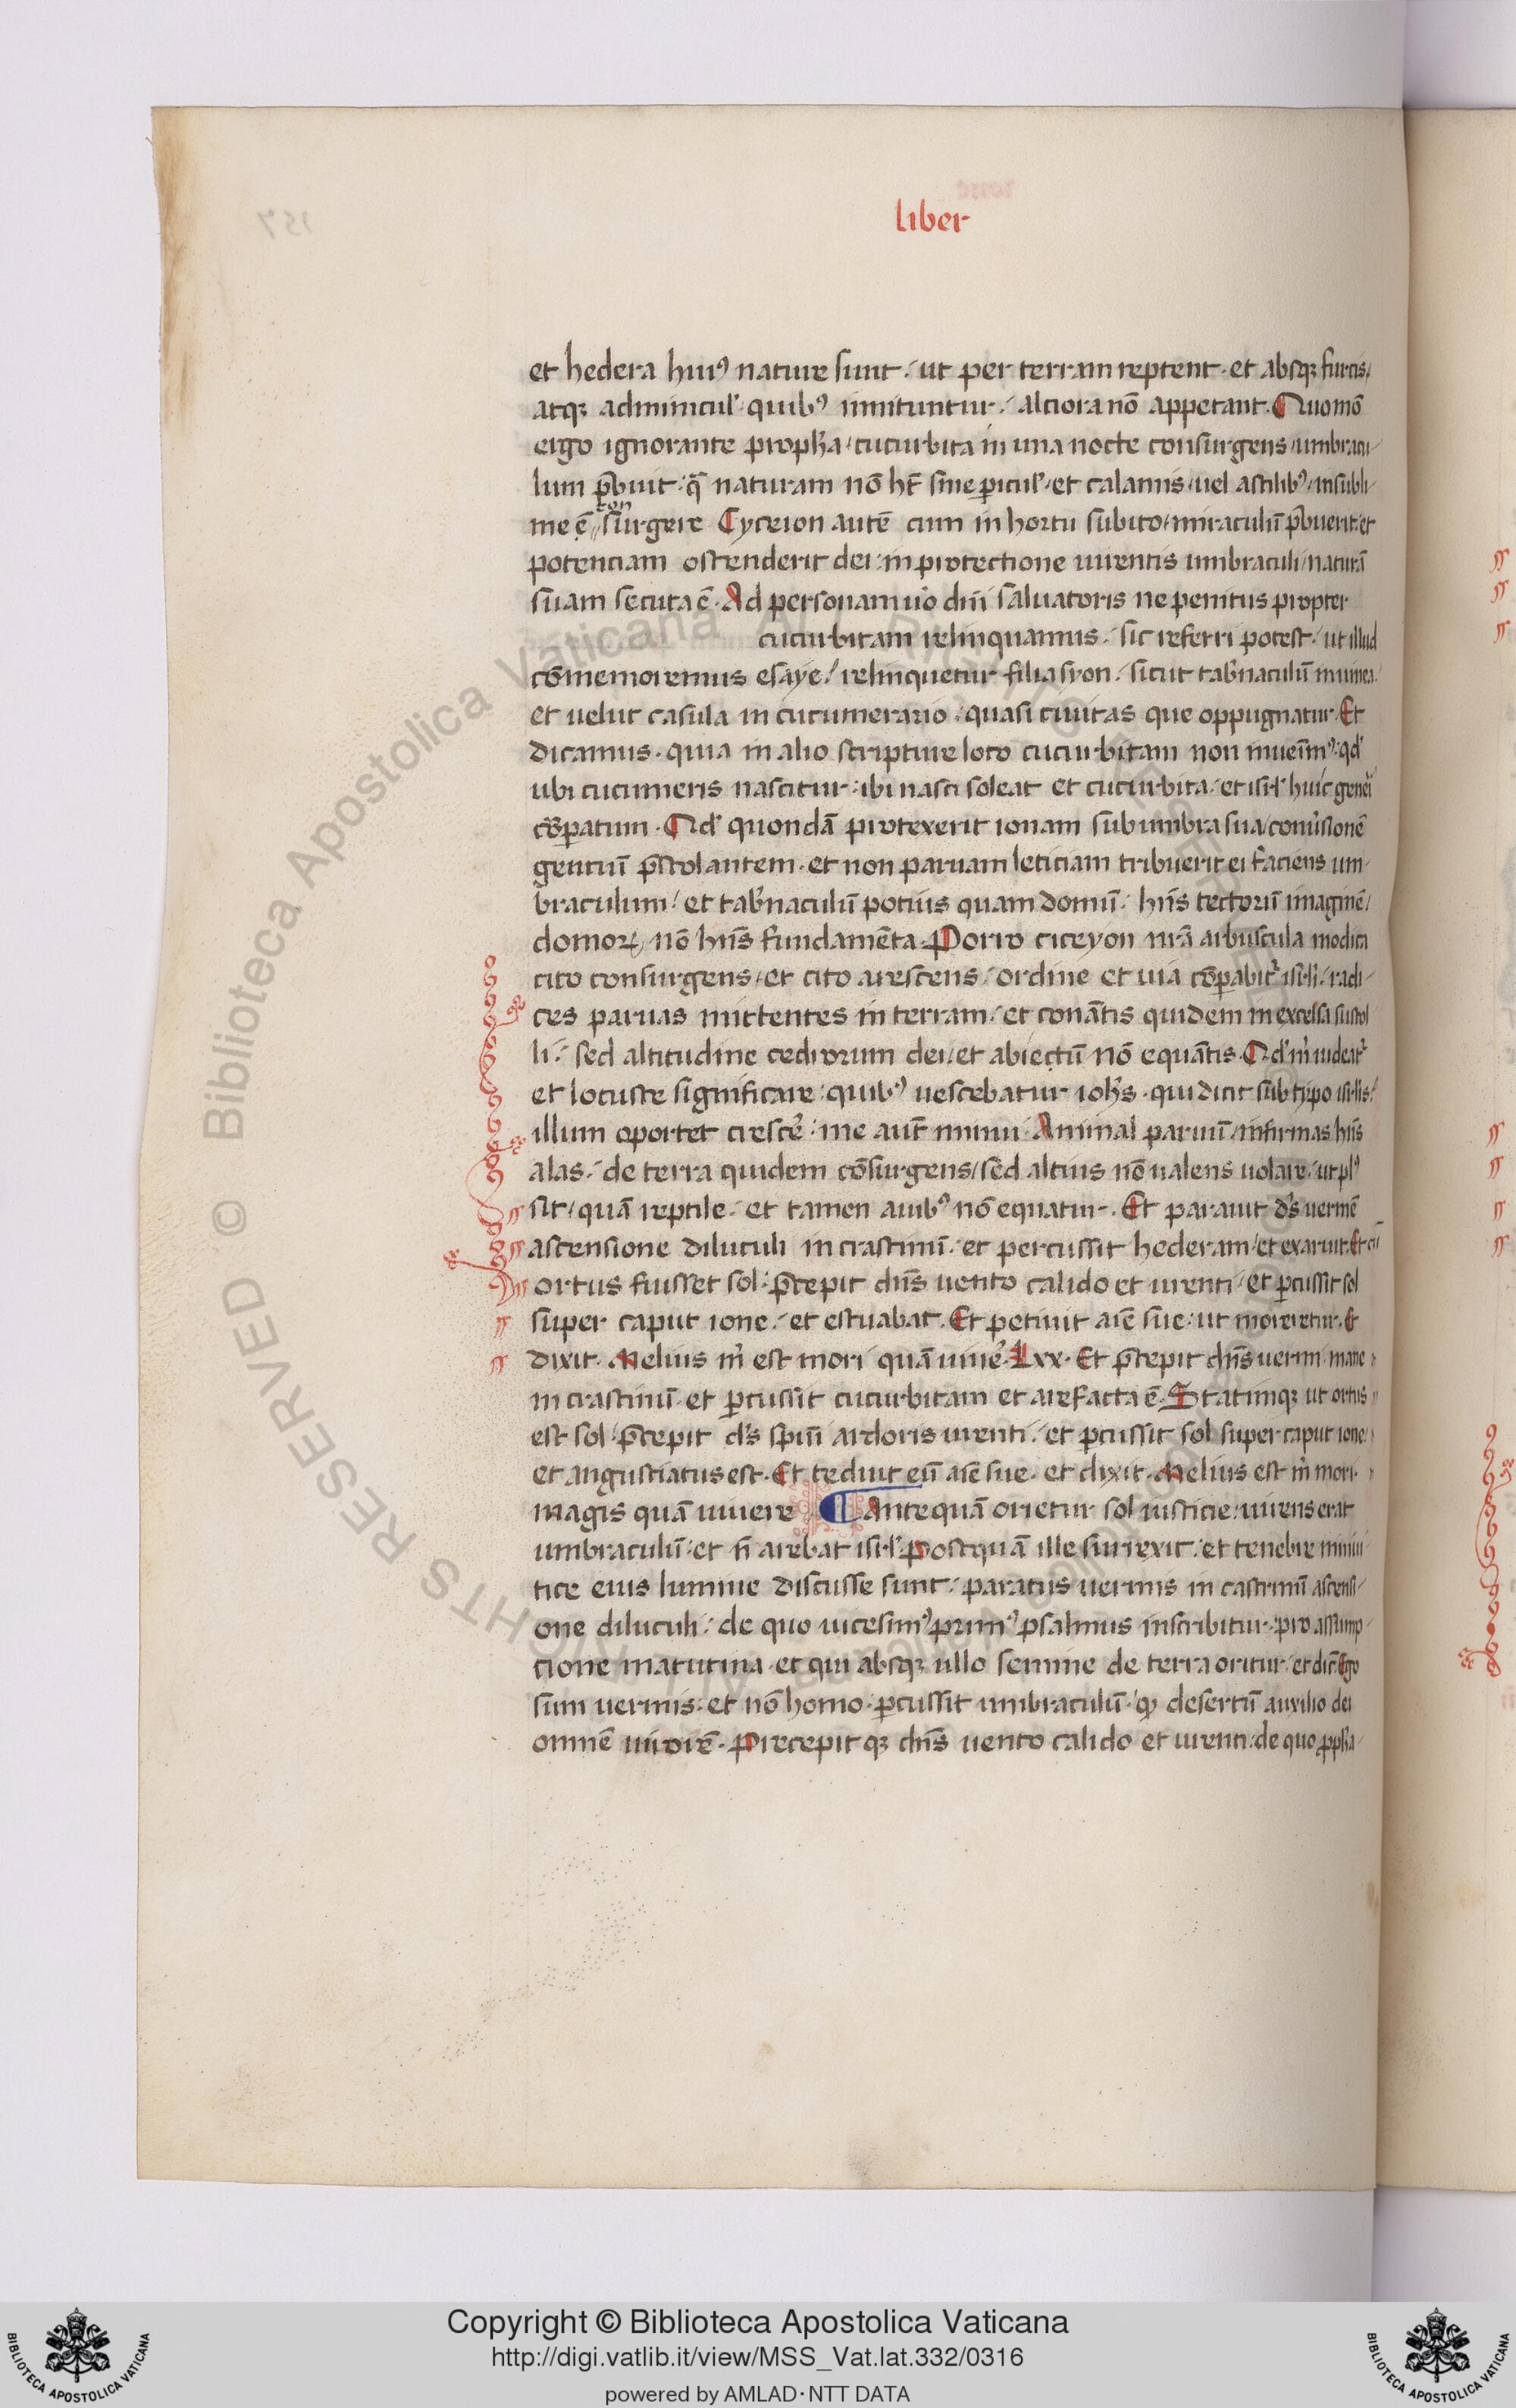 liber
et hedera huiꝰ nature sunt. ut per terram reptent. et absqꝫ furcis/
atqꝫ adminicul'. quibꝰ innituntur. altiora nō appetant. Quomō
ergo ignorante proph̄a. cucurbita in una nocte consurgens/umbracu
lum p̄buit. q̄ naturam nō ht̄ sine pꝑicul'. et calamis/uel astilibꝰ/insubli
me ē/ con
surgere Cyceion autē cum in hortu subito/miraculū p̄buerit/et
potenciam ostenderit dei. in protectione uirentis umbraculi/naturā
suam secuta ē. Ad personam uō dn̄i saluatoris ne penitus propter
cucurbitam relinquamus. sic referri potest. ut illud
cōmemoremus esaye. relinquetur filia syon. sicut tab'naculū in uinea.
et uelut casula in cucumerario. quasi ciuitas que oppugnatur. Et
dicamus. quia in alio scripture loco cucurbitam non inuenīmꝰ. qd'
ubi cucumeris nascitur. ibi nasci soleat et cucurbita. et isrl' huic gen'i
cōparatum. Qd' quondā protexerit ionam sub umbra sua/conu'sionē
gentiū p̄stolantem. et non paruam leticiam tribuerit ei faciens um
braculum. et tab'naculū potius quam domū. hn̄s tectorū imaginē/
domoꝝ nō hn̄s fundamēta. Porro ciceyon nr̄a arbuscula modica
cito consurgens. et cito arescens. ordine et uia cōparabit' isrl'i. radi
ces paruas mittentes in terram. et conātis quidem in excelsa sustol
li. sed altitudine cedrorum dei. et abiectū nō equātis. Qd' m' uideat'
et locuste significare. quibꝰ uescebatur ioh̄s. qui dicit sub typo isrl'is.
illum oportet cresce'. me aut̄ minui. Animal paruū/infirmas hn̄s
alas. de terra quidem cōsurgens/sed altius nō ualens uolare. ut plꝰ
sit/quā reptile. et tamen auibꝰ nō equatur. Et parauit ds̄ uermē
ascensione diluculi in crastinū. et percussit hederam. et exaruit. Et cū
ortus fuisset sol. p̄cepit dn̄s uento calido et urenti. et pꝑcussit sol
super caput ione. et estuabat. Et petiuit aīe sue. ut moreretur. Et
dixit. Melius m' est mori quā uiue'. Lxx. Et p̄cepit dn̄s uermi mane
in crastinū. et pꝑcussit cucurbitam et arefacta ē. Statimqꝫ ut ortus
est sol. p̄cepit ds̄ spū̄i ardoris urenti. et pꝑcussit sol super caput ione.
et angustiatus est. Et teduit eū aīe sue. et dixit. Melius est m' mori.
magis quā uiuere Antequā orietur sol iusticie/uirens erat
umbraculū. et n̄ arebat isrl'. Postquā ille surrexit. et tenebre niniui
tice eius lumine discusse sunt. paratus uermis in castrinū ascensi
one diluculi. de quo uicesimꝰ primꝰ psalmus inscribitur. pro assump
tione matutina. et qui absqꝫ ullo semine de terra oritur. et dic̄ Ego
sum uermis. et nō homo. pꝑcussit umbraculū. qꝫ desertū auxilio dei
omnē uirorē. Precepitqꝫ dn̄s uento calido et urenti. de quo pꝓph̄a
Copyright © Biblioteca Apostolica Vaticana
http://digi.vatlib.it/view/MSS_Vat.lat.332/0316
powered by AMLAD·NTT DATA